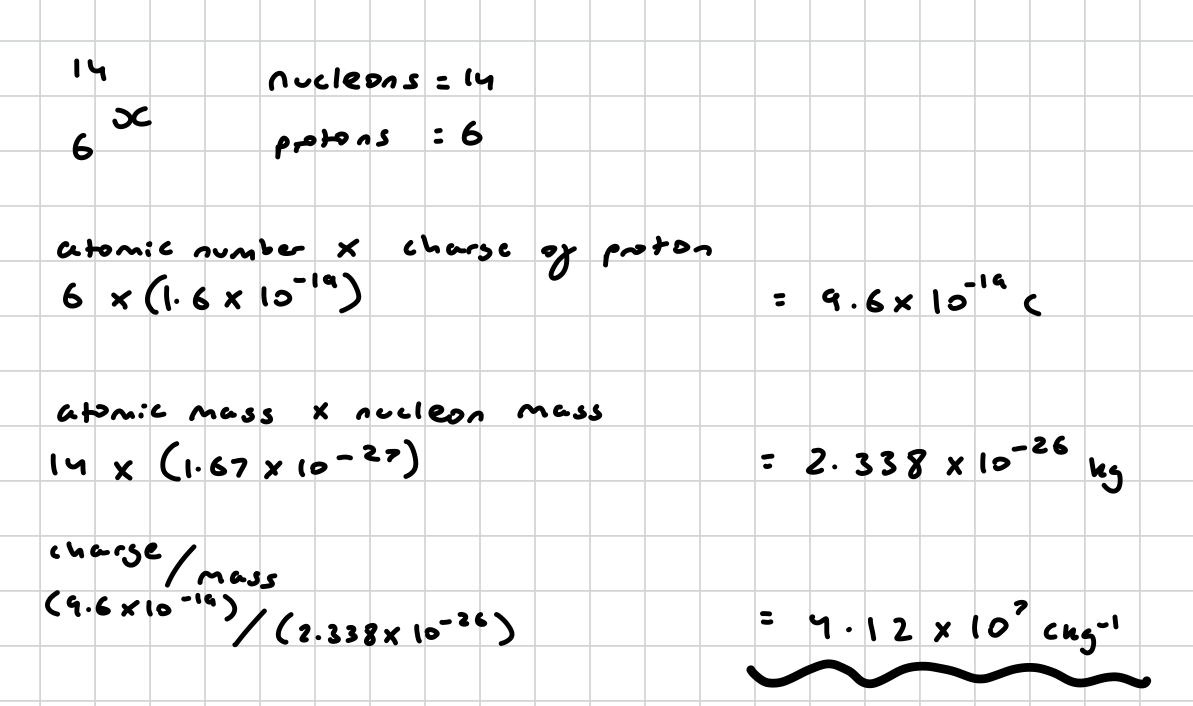 14
x
6
nucleons = 14
protons = 6
atomic number x charge of proton
6 x (1.6 x 10⁻¹⁹) = 9.6 x 10⁻¹⁹ C
atomic mass x nucleon mass
14 x (1.67 x 10⁻²⁷) = 2.338 x 10⁻²⁶ kg
charge/mass
(9.6 x 10⁻¹⁹)/(2.338 x 10⁻²⁶) = 4.12 x 10⁷ ckg⁻¹